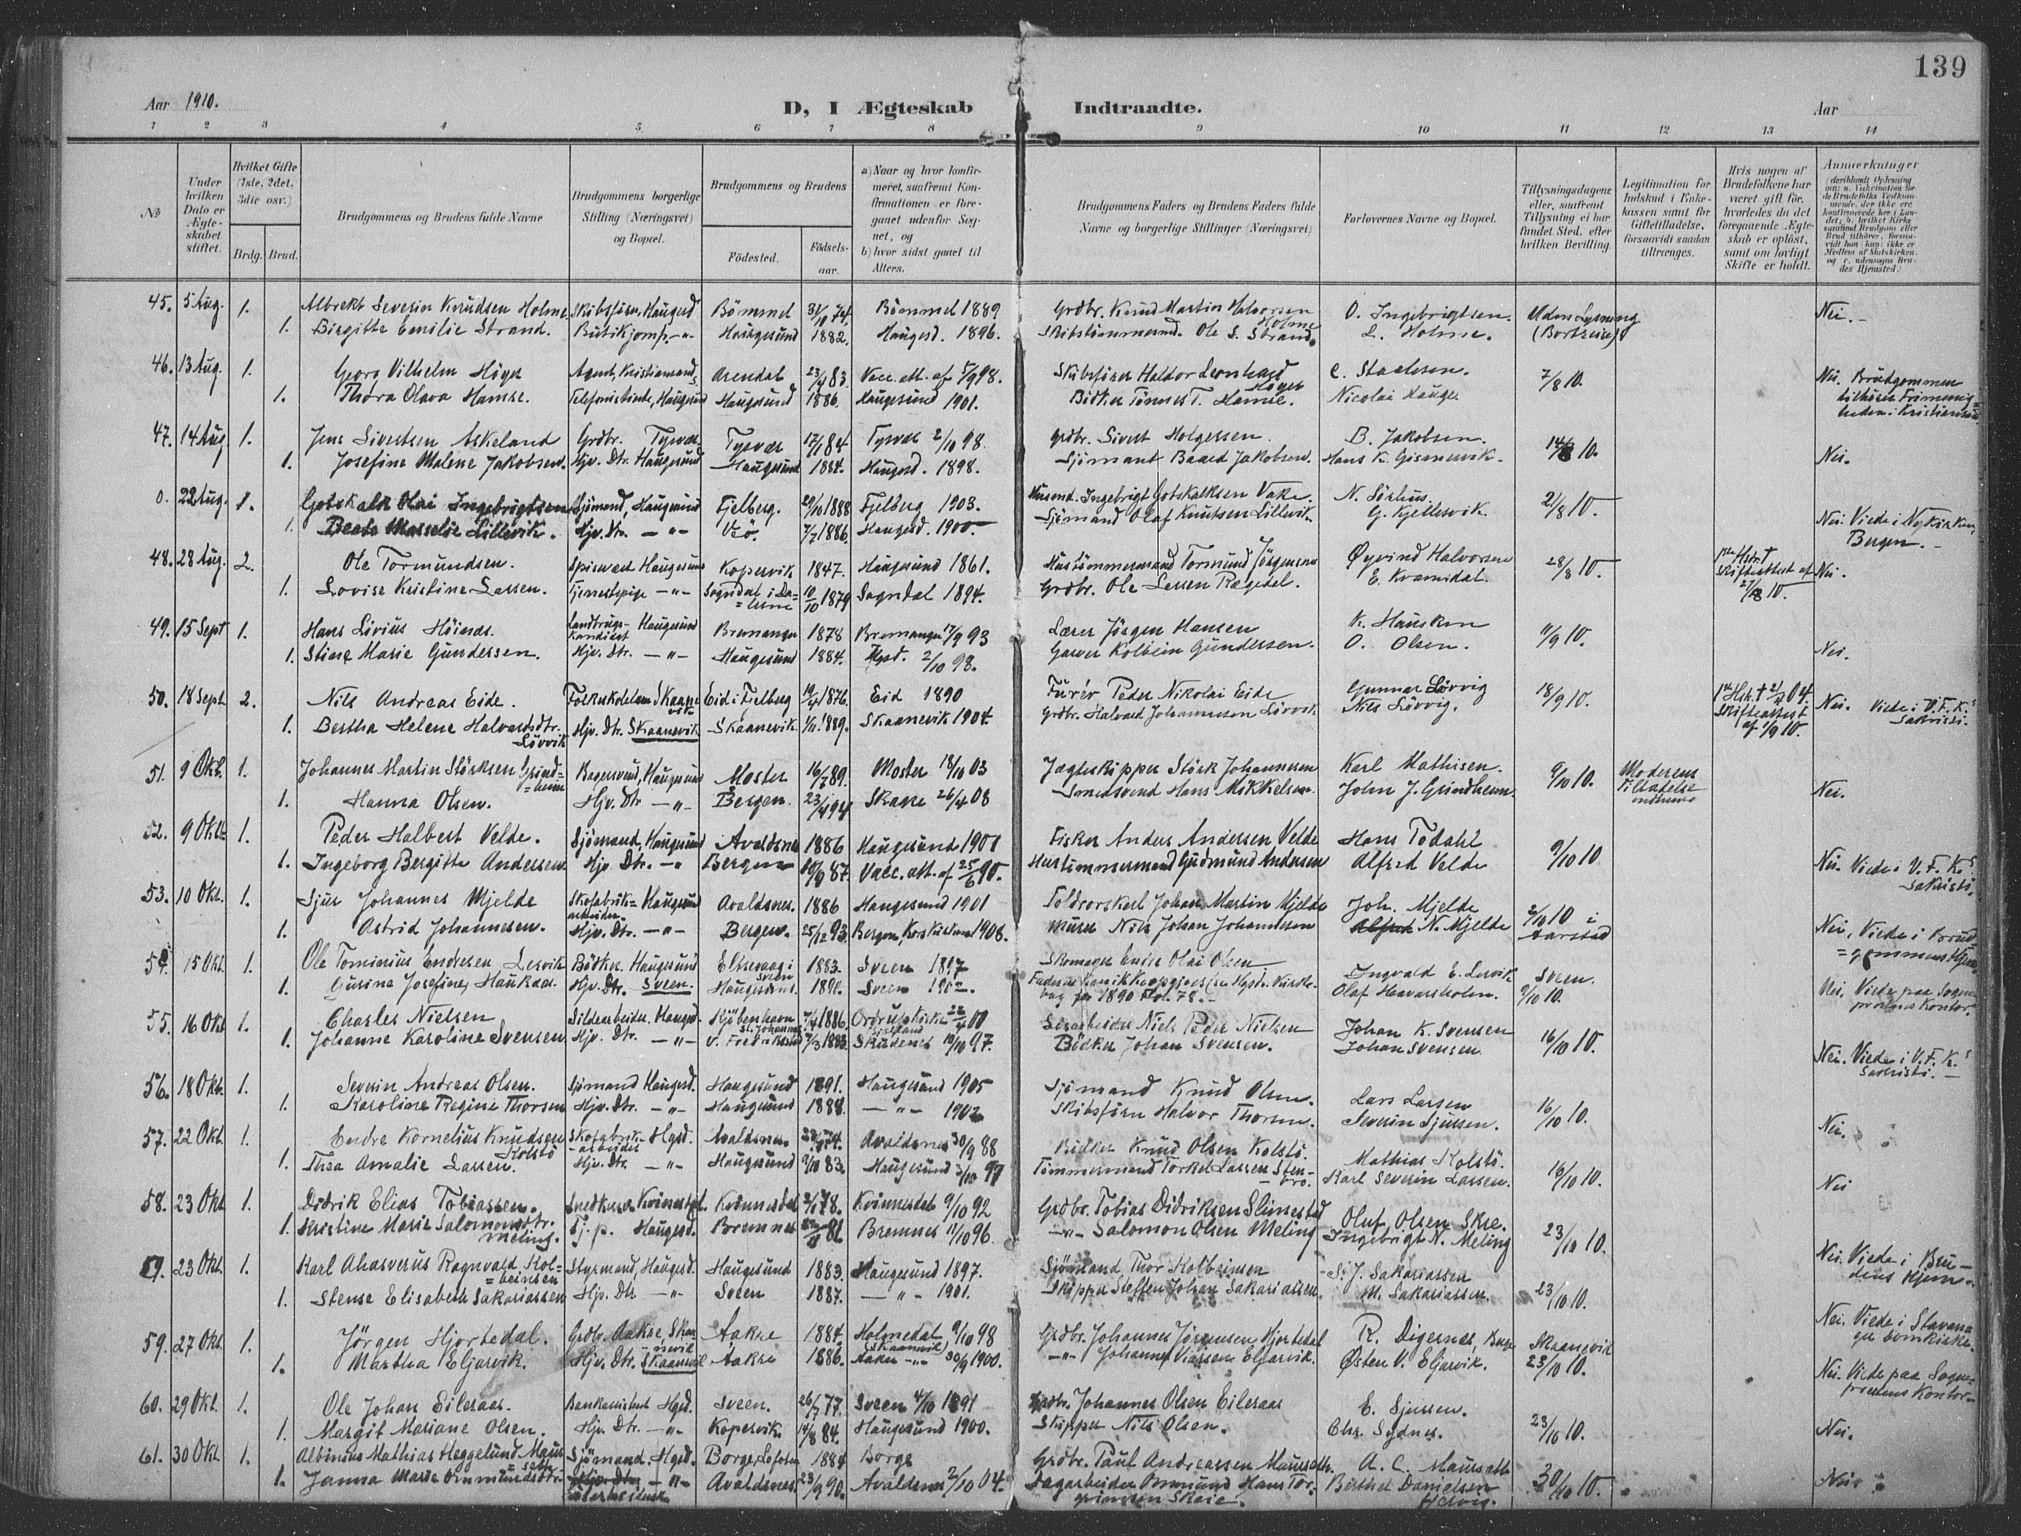 139
Aar 1910.
D, I Ægteskab Indtraadte.
Aar
1 2 3 4 5 6 7 8 9 10 11 12 13 14
No
Under hvilken Dato er Ægteskabet stiftet.
Hvilket Gifte (1ste, 2det, 3die osv.)
Brdg. Brud.
Brudgommens og Brudens fulde Navne
Brudgommens borgerlige Stilling (Næringsvei) og Bopæl.
Brudgommens og Brudens
Fødested. Fødselsaar.
a) Naar og hvor konfirmeret, saafremt Konfirmationen er foregaaet udenfor Sognet, og
b) hvor sidst gaaet til Alters.
Brudgommens Faders og Brudens Faders fulde Navne og borgerlige Stillinger (Næringsvei)
Forlovernes Navne og Bopæl.
Tillysningsdagene eller, saafremt Tillysning ei har fundet Sted, efter hvilken Bevilling.
Legitimation for Indskud i Enkekassen samt for Giftetilladelse, forsaavidt saadan tiltrænges.
Hvis nogen af Brudefolkene har været gift før, hvorledes da det foregaaende Ægteskab er opløst, samt om lovligt Skifte er holdt.
Anmærkninger
45. 5 Aug. 1. Albrekt Severin Knudsen Holme Skibsfører, Haugesd Bömmel 31/10 74 Bömmel 1889 Grdbr. Knud Martin Halvorsen Holme O. Ingebrigtsen. Uden Lysning Nei.
1. Birgitte Emilie Strand. Butikjomfr. -"- Haugesund 1882. Haugesd. 1896. Skibstömmermd. Ole S. Strand. L. Holme. (Bortreise)
46. 13 Aug. 1. Georg Vilhelm Höyer Agent, Kristiansand Arendal 83. Vacc. att. af 5/9 98. Skibsförer Haldor Leonhard Höyer C. Staalesen. 7/8 10. Nei. Brudgommen
1. Thora Olava Hamre. Telefonistinde, Haugesund Haugesund 1886. Haugesund 1901. Bödker Tönnes T. Hamre. Nicolai Hauge
47. 14 Aug. 1. Jens Sivertsen Askeland Grdbr. Tysvær Tysvær 84 Tysvær 2/10 98. Grdbr. Sivert Holgersen. B. Jakobsen. 14/8 10. Nei.
1. Josefine Malene Jakobsen. Hjv. Dtr. Haugesund Haugesund 1884. Haugesd. 1898. Sjömand Baard Jakobsen. Hans K. Gismervik.
0. 22 Aug. 1. Gotskalk Olai Ingebrigtsen Sjömand, Haugesund Fjelberg. 29/10 1888 Fjelberg 1903. Husmd. Ingebrigt Gotskalksen Vake. N. Sörhus. 21/8 10. Nei. Viede i Nykirken, Bergen.
1. Beate Marselie Lillevik. Hjv. Dtr. -"- 1886. Haugesd. 1900. Sjömand Olaf Knutsen Lillevik. G. Kjellesvik.
48. 28 Aug. 2. Ole Tormundsen. Haugesund Kopervik 1847. Haugesund 1861. Hustömmermand Tormund Jörgensen Øyvind Halvorsen 28/8 10. Skifteattest af 27/8 10. Nei.
1. Lovise Kristine Larsen. Tjenestepige -"- Sogndal i Dalerne 1879 Sogndal 1894. Grdbr. Ole Larsen Rægedal. E. Kvamdal.
49. 15 Sept 1. Hans Livius Höines. Landbrugskandidat Haugesund Bremanger 1878 Bremanger 17/9 93 Lærer Jörgen Hansen K. Hausken 11/9 10.
1. Stine Marie Gundersen. Hjv. Dtr. -"- Haugesund 1884. Hgsd. 2/10 98. Garver Kolbein Gundersen. O. Olsen. Nei.
50. 18 Sept 2. Nils Andreas Eide. Skaanevik Eid i Fjelberg 1876. Eid 1890 Furér Peder Nikolai Eide Gunnar Lövvig 18/9 10. Nei. Viede i V. F. K.s Sakristi.
1. Bertha Helene Halvardsdtr. Lövvik Hjv. Dtr. Skaanevik Skaanevik 1889. Skaanevik 1904. Grdbr. Halvard Johannesen Lövvik Nils Lövvig. Skifteattest
51. 9 Okt. 1. Johannes Martin Störksen Grindheim Bagersvend, Haugesund Moster 16/7 89. Moster 18/10 03 Jægteskipper Störk Johannesen Karl Mathisen. 9/10 10. Moderens Tilladelse
1. Hanna Olsen. Hjv. Dtr. -"- Bergen. Skaare 26/4 08 Smedsvend Hans Mikkelsen. John J. Grindheim. Nei.
52. 9 Okt. 1. Peder Halbert Velde. Sjömand, Haugesund Avaldsnes 1886 Haugesund 1901 Fisker Anders Andersen Velde Hans Tödahl 9/10 10
1. Ingeborg Bergitte Andersen. Hjv. Dtr. -"- Bergen 87. Vacc. att. af 25/6 90. Hustömmermand Gudmund Andersen Alfred Velde Nei. Viede i V. F. K.s Sakristi.
53. 10 Okt. 1. Sjur Johannes Mjelde Skofabrikarbeider Haugesund Avaldsnes. 1886 Haugesund 1901 Johan Martin Mjelde Joh. Mjelde 2/10 10 i Aarstad
1. Astrid Johannesen. Hjv. Dtr. -"- Bergen. 25/12 93. Bergen, Korskirken 1908. Murer Nils Johan Johannesen Alfred N. Mjelde Nei, Viede i Brudgommens Hjem
54. 15 Okt. 1. Ole Tominius Endresen Lervik Bödker. Haugesund Eltrevaag i Sveen 1883. Sveen 1897 Skomager Endre Olai Olsen Ingvald E. Lervik Sveen. 9/10 10.
1. Gurine Josefine Haukaas. Hjv. Dtr. Sveen. Haugesund. 1890. Sveen 1902. Olaf Haavarsholm. Nei, Viede paa Sognepræstens Kontor.
55. 16 Okt 1. Charles Nielsen Sildearbeider, Haugesd. Kjöbenhavn 1886. Niels Peder Nielsen Johan K. Svensen 16/10 10.
1. Johanne Karoline Svensen Hjv. Dtr. -"- 1883. Skudenes 10/10 97. Bödker Johan Svensen. Johan Svensen Nei. Viede i V. F. K.s Sakristi.
56. 18 Okt. 1. Severin Andreas Olsen. Sjömand Haugesd. Haugesund 1891. Haugesund 1905 Sjömand Knud Olsen. Lars Larsen 16/10 10.
1. Karoline Regine Thorsen Hjv. Dtr. -"- Haugesund 1884. -"- 1902 Skibsförer Halvor Thorsen. Severin Sjursen. Nei.
57. 22 Okt. 1. Endre Kornelius Knudsen Kolstö Skofabrikarbeider Hgsd. Avaldsnes. 74. Avaldsnes 30/9 88 Bödker Knud Olsen Kolstö. Mathias Kolstö. 16/10 10.
1. Thea Amalie Larsen. Hjv. Dtr. -"- Haugesund 83. Haugesund 3/10 97 Tömmermand Torkel Larsen Karl Severin Larsen. Nei
58. 23 Okt. 1. Didrik Elias Tobiassen. Snedker Kvinesdal Kvinesdal 78. Kvinesdal 9/10 92 Grdbr. Tobias Didriksen Slimestad Oluf Olsen Skre. 23/10 10.
1. Kristine Marie Salomonsdtr. Meling. Tj. p. Haugesd. Bremnes 81 Bremnes 11/10 96. -"- Salomon Olsen Meling. Ingebrigt N. Meling Nei. Viede i Brudens Hjem.
59. 23 Okt. 1. Karl Ahasverus Ragnvald Kolbeinsen Styrmand, Haugesd. Haugesund 1883. Haugesund 1897. Sjömand Thor Kolbeinsen S. J. Sakariassen 23/10 10.
1. Stense Elisabeth Sakariassen Hjv. Dtr. -"- Sveen 1887. -"- 1901. Skipper Steffen Johan Sakariassen. M. Sakariassen. Nei. Viede i Stavanger Domkirke.
59. 27 Okt. 1. Jørgen Hjortedal. Grdbr. Aakre, Skaanevik Aakre 1884. Holmedal (Skaanevik) 9/10 98 Grdbr. Johannes Jörgensen Hjortedal R. Digernes, Skaanevik
1. Martha Eljarvik. Hjv. Dtr. Skaanevik Aakre 1886. Aakre -"- 30/9 1900. -"- Johannes Eljarvik. Østen V. Eljarvik. 23/10 10. Nei. Viede paa Sognepræstens Kontor
60. 29 Okt. 1. Ole Johan Eileraas. Bankassistent Hgsd. Sveen. 26/7 77. Sveen 4/10 1891 Grdbr. Johannes Olsen Eileraas E. Sjursen. 23/10 10.
1. Margit Mariane Olsen. Hjv. Dtr. -"- Kopervik. 14/8 84. Haugesund 1900. Skipper Nils Olsen. Chr. Sydnes. Nei.
61. 30 Okt 1. Albinius Mathias Heggelund Maursæth Sjömand, Hgsd. Borge, Lofoten 1884 Borge Grdbr. Paul Andreassen Maursæth. A. C. Maursæth 30/10 10.
1. Janna Marie Ommundsdtr. Hjv. Dtr. -"- Avaldsnes. 23/9 90. Avaldsnes 2/10 04. Dagarbeider Ommund Hans Torgrimsen Skeie. Berthel Danielsen Nei